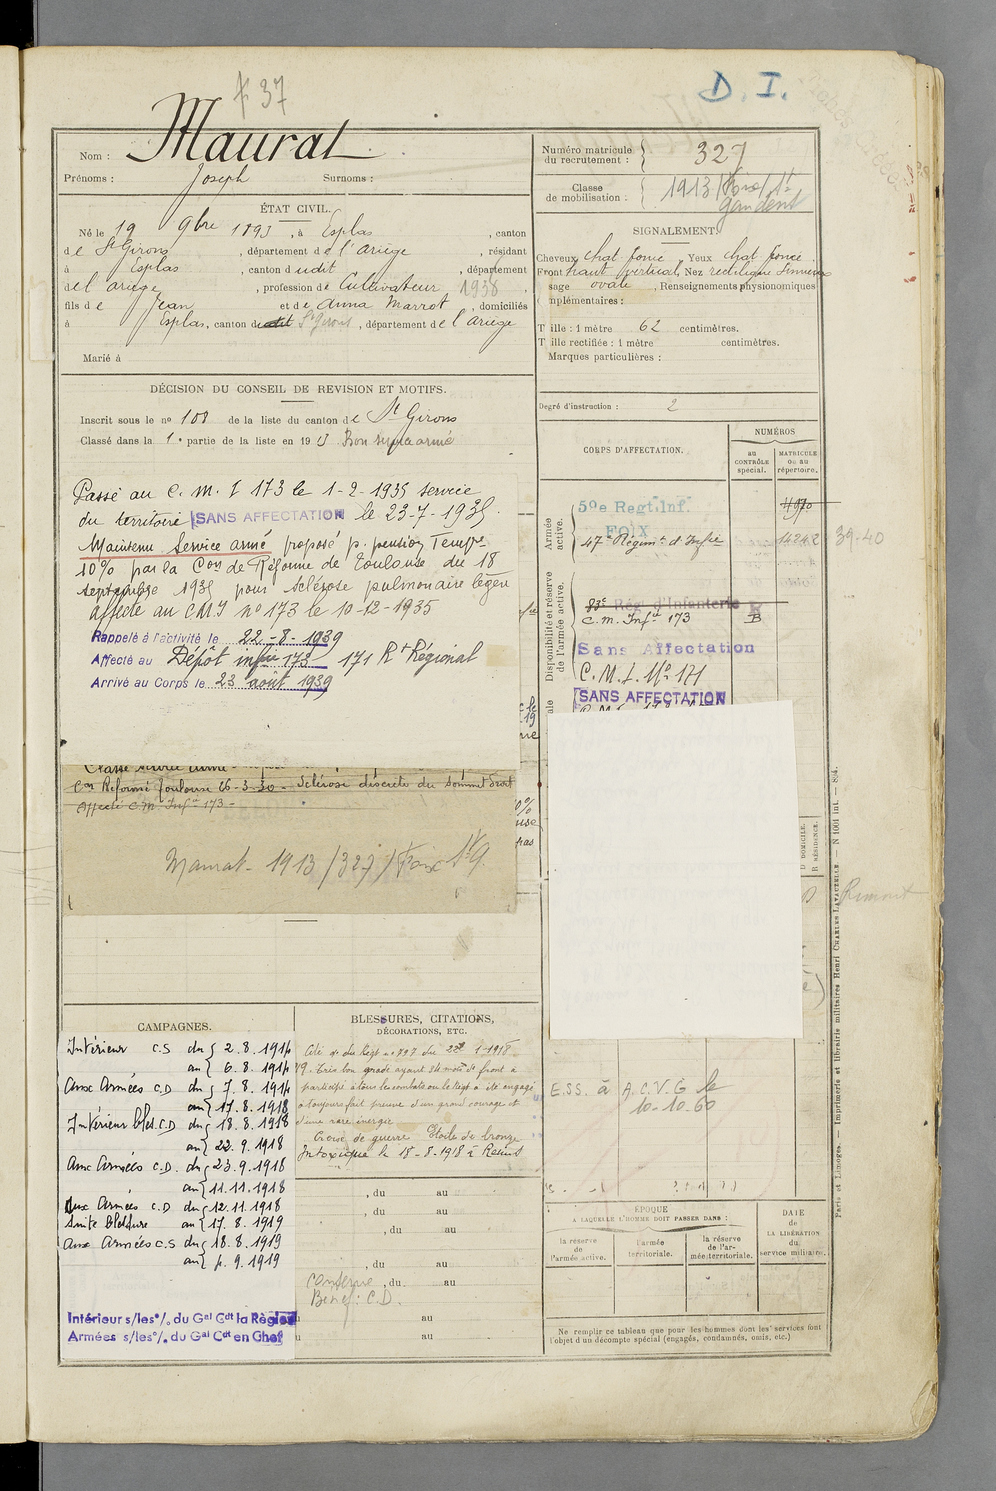 F 37
D. I.
Nom : Maurat
Prénoms : Joseph Surnoms :
Numéro matricule du recrutement : 327
Classe de mobilisation : 1913 / Foix / St Gaudent
ÉTAT CIVIL.
Né le 19 9bre 1893, à Esplas, canton
de St Girons, département de l'ariège, résidant
à Esplas, canton dudit, département
de l'ariège, profession de Cultivateur 1938,
fils de Jean et de Anna Marrot, domiciliés
à Esplas, canton dudit St Girons, département de l'ariège
Marié à
SIGNALEMENT.
Cheveux chat foncé, Yeux chat foncé
Front haut vertical, Nez rectiligne Sinueux
sage ovale, Renseignements physionomiques
mplémentaires :
T ille : 1 mètre 62 centimètres.
T ille rectifiée : 1 mètre centimètres.
Marques particulières :
Degré d'instruction : 2
DÉCISION DU CONSEIL DE REVISION ET MOTIFS.
Inscrit sous le no 108 de la liste du canton de St Girons
Classé dans la 1e partie de la liste en 1913 Bon service armé
Passé au C. M. I 173 le 1-2-1935 service
du territoire SANS AFFECTATION le 23-7-1935.
Maintenu Service armé proposé p. pension Tempre
10% par la Con de Réforme de Toulouse du 18
septembre 1935 pour sclérose pulmonaire légère
affecté au CMI no 173 le 10-12-1935
Rappelé à l'activité le 22-8-1939
Affecté au Dépôt infrie 173 171 Rt Régional
Arrivé au Corps le 23 août 1939
Con Réforme Toulouse 26-3-30 - Sclérose discrète du sommet droit
Affecté C.M. Infie 173 -
Maurat - 1913 / 327 / Foix St G.
CORPS D'AFFECTATION.
NUMÉROS
au CONTRÔLE spécial.
MATRICULE ou au répertoire.
Armée active.
50e Regt. Inf.
FOIX
47e Régimt d'Infrie
4970
14242
39-40
Disponibilité et réserve de l'armée active.
83e Rég. d'Infanterie
C. m. Infie 173
B
Sans Affectation
C. M. I. No 171
SANS AFFECTATION
D DOMICILE.
R RÉSIDENCE.
Rimont
CAMPAGNES.
Intérieur C.S du 2.8.1914
au 6.8.1914
Aux Armées C.D du 7.8.1914
au 17.8.1918
Intérieur bles. C.D du 18.8.1918
au 22.9.1918
Aux Armées C.D. du 23.9.1918
au 11.11.1918
Aux Armées C.D du 12.11.1918
suite blessure au 17.8.1919
Aux Armées C.S du 18.8.1919
au 1.9.1919
Intérieur s/les o/. du Gal Cdt la Région
Armées s/les o/. du Gal Cdt en Chef
BLESSURES, CITATIONS,
DÉCORATIONS, ETC.
Cité o. du Régt no 727 du 22 1-1918
19. Très bon gradé ayant 34 mois de front a
participé à tous les combats où le Régt a été engagé
a toujours fait preuve d'un grand courage et
d'une rare énergie
Croix de guerre Étoile de bronze
Intoxiqué le 18-8-1918 à Reims
, du au
, du au
, du au
, du au
Conserve , du au
Bénéf : C.D.
au
au
E.S.S. à A.C.V.G le
10-10-60
ÉPOQUE
A LAQUELLE L'HOMME DOIT PASSER DANS :
la réserve de l'armée active.
l'armée territoriale.
la réserve de l'armée territoriale.
DATE de LA LIBÉRATION du service militaire.
Ne remplir ce tableau que pour les hommes dont les services font
l'objet d'un décompte spécial (engagés, condamnés, omis, etc.)
Paris et Limoges. — Imprimerie et librairie militaires Henri CHARLES-LAVAUZELLE. — N 1001 int. — 8/4.